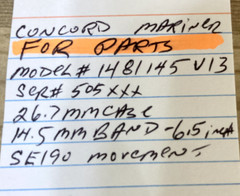 CONCORD MARINER
FOR PARTS
MODEL# 1481145 V13
SER# 505XXX
26.7MM CASE
14.5MM BAND - 6.5 inch
SE190 movement